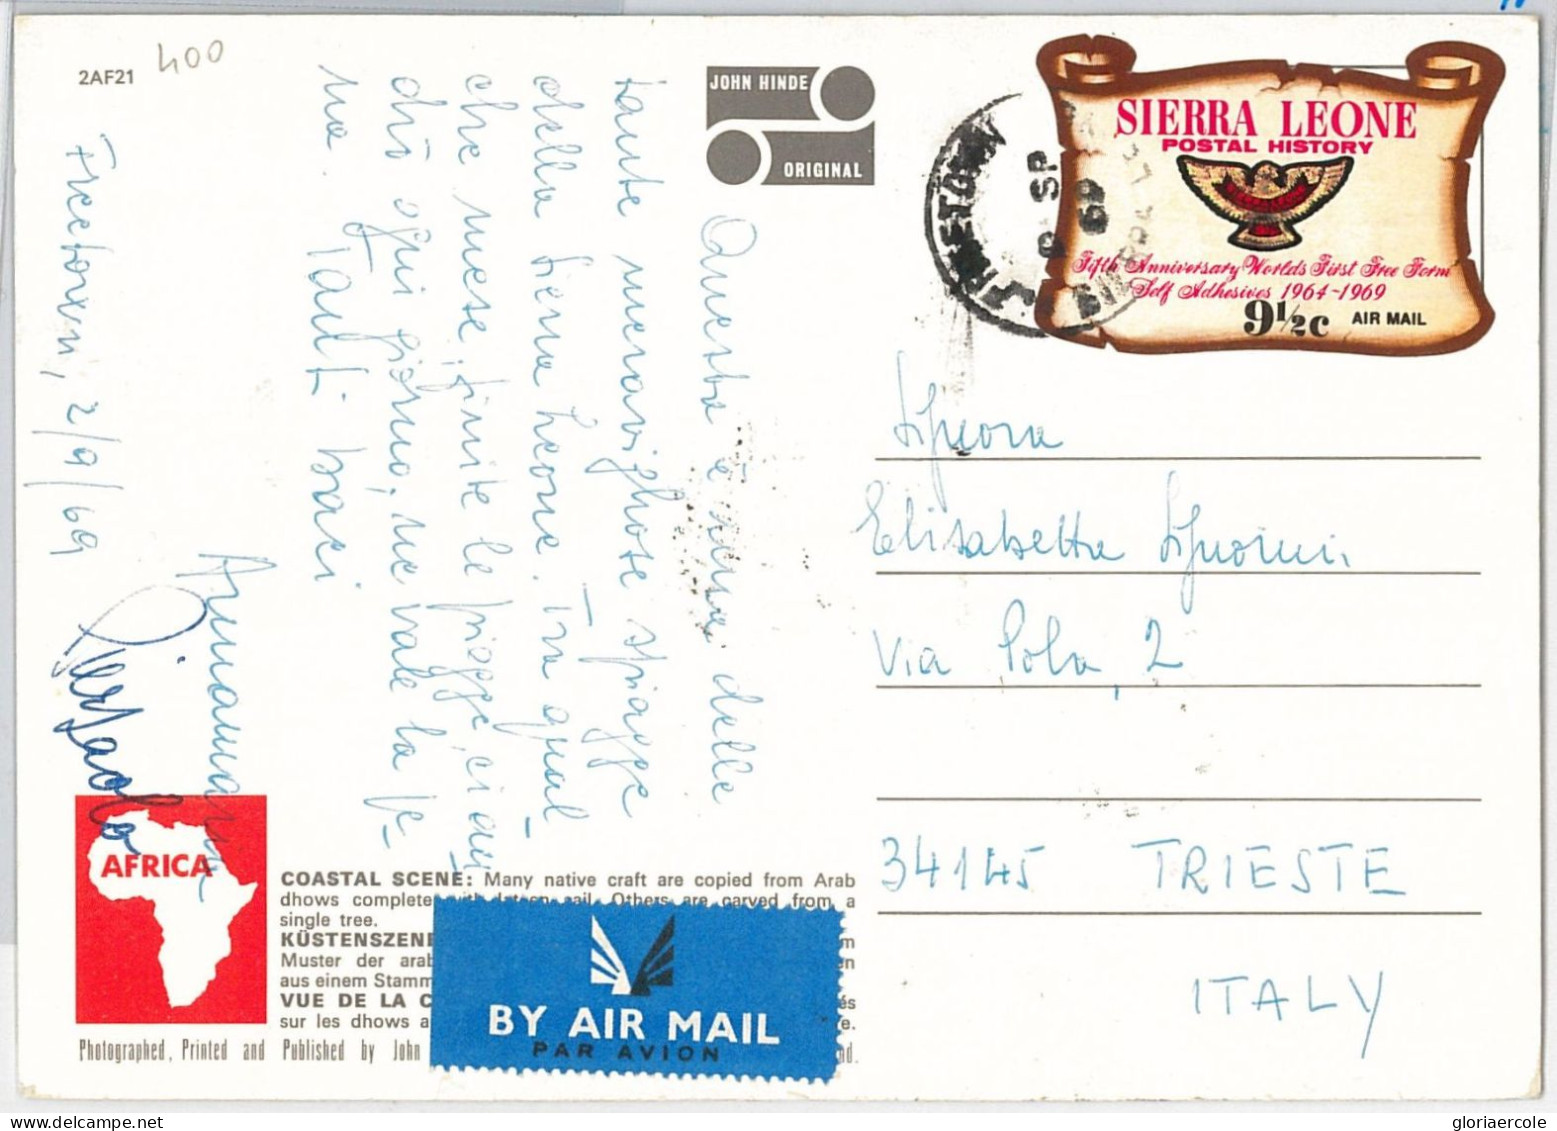 2AF21
400
JOHN HINDE
ORIGINAL
SIERRA LEONE
POSTAL HISTORY
Fifth Anniversary Worlds First Free Form
Self Adhesives 1964-1969
9½c AIR MAIL
FREETOWN
SP
69
Freetown, 2/9/69
Questa è una delle
tante meravigliose spiagge
della Sierra Leone. Tra qual
che mese, finite le piogge, ci an
drò ogni giorno, ne vale la pe-
na. Tanti baci
Annamaria
Pierpaolo
Signora
Elisabetta Signorini
Via Pola, 2
34145 TRIESTE
ITALY
AFRICA
COASTAL SCENE: Many native craft are copied from Arab
dhows complete with lateen sail. Others are carved from a
single tree.
KÜSTENSZENE
Muster der arab
aus einem Stamm
VUE DE LA C
sur les dhows a
BY AIR MAIL
PAR AVION
Photographed, Printed and Published by John
gloriaercole